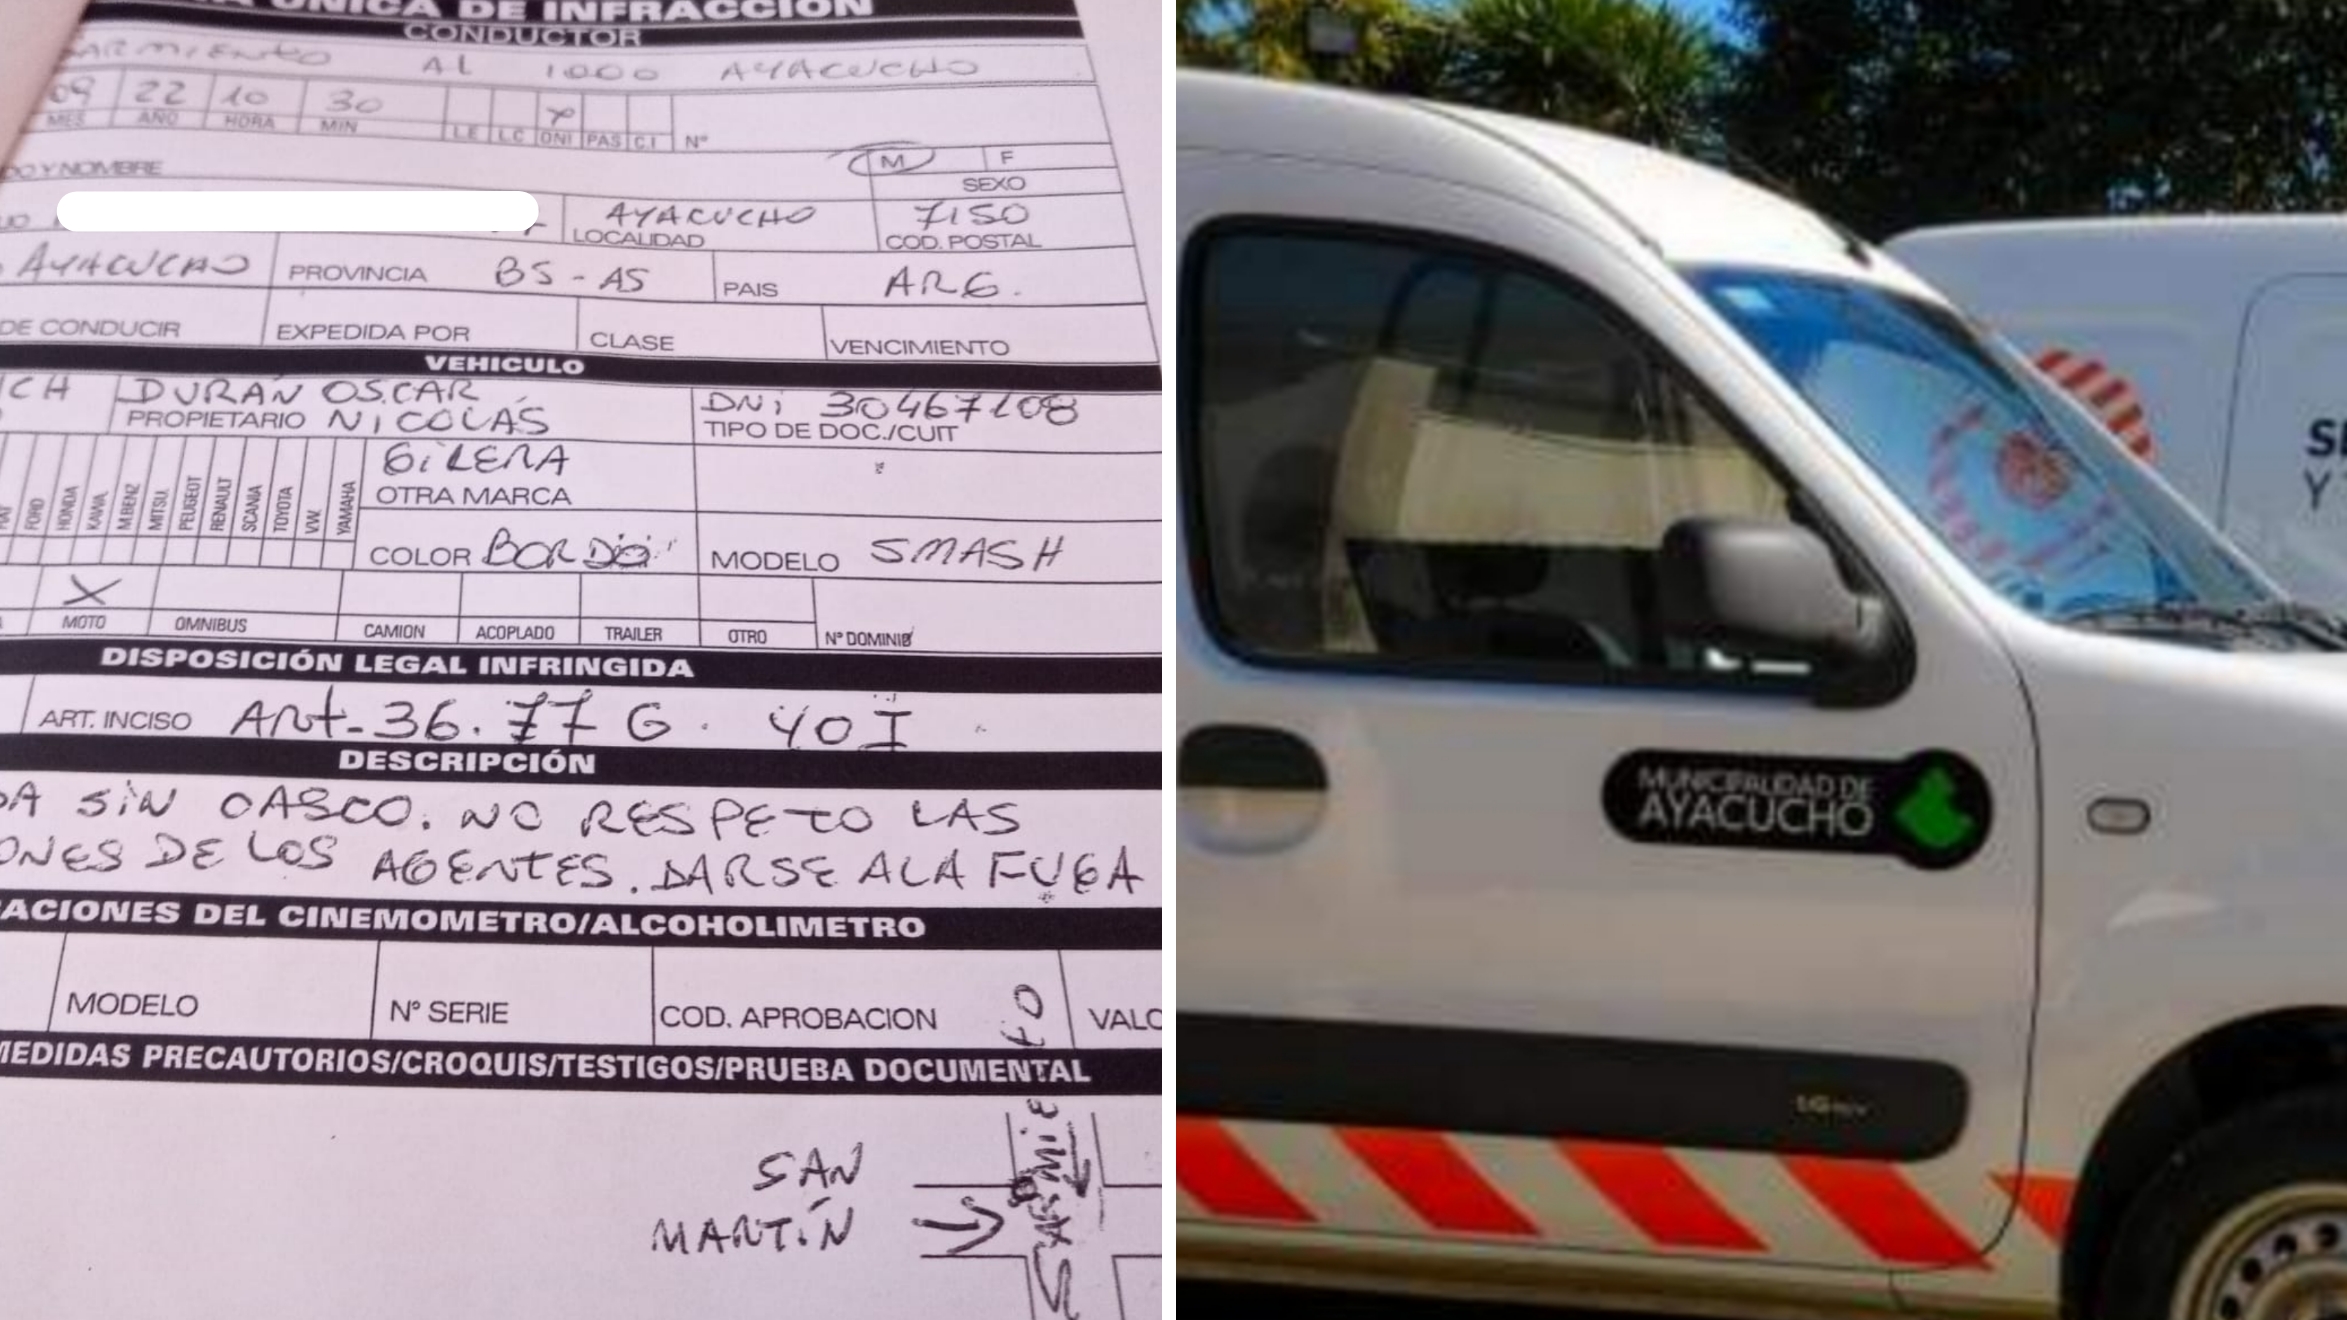 ÚNICA DE INFRACCIÓN
CONDUCTOR
ARMIENTO AL 1000 AYACUCHO
09 22 10 30 X
MES AÑO HORA MIN LE LC DNI PAS C.I Nº
DO Y NOMBRE M F
SEXO
AYACUCHO 7150
LOCALIDAD COD. POSTAL
AYACUCHO PROVINCIA BS-AS PAIS ARG.
DE CONDUCIR EXPEDIDA POR CLASE VENCIMIENTO
VEHICULO
ICH DURÁN OSCAR DNI 30467108
PROPIETARIO NICOLÁS TIPO DE DOC./CUIT
GILERA
OTRA MARCA
FORD HONDA KAWA. M.BENZ MITSU. PEUGEOT RENAULT SCANIA TOYOTA V.W. YAMAHA
COLOR BORDÓ MODELO SMASH
X
MOTO OMNIBUS CAMION ACOPLADO TRAILER OTRO Nº DOMINIO
DISPOSICIÓN LEGAL INFRINGIDA
ART. INCISO Art-36. 77 G. 40 I
DESCRIPCIÓN
DA SIN CASCO. NO RESPETO LAS
ONES DE LOS AGENTES. DARSE A LA FUGA
ACIONES DEL CINEMOMETRO/ALCOHOLIMETRO
MODELO Nº SERIE COD. APROBACION VALO
MEDIDAS PRECAUTORIOS/CROQUIS/TESTIGOS/PRUEBA DOCUMENTAL
SAN
MARTÍN
SARMIENTO
MUNICIPALIDAD DE
AYACUCHO
1.6